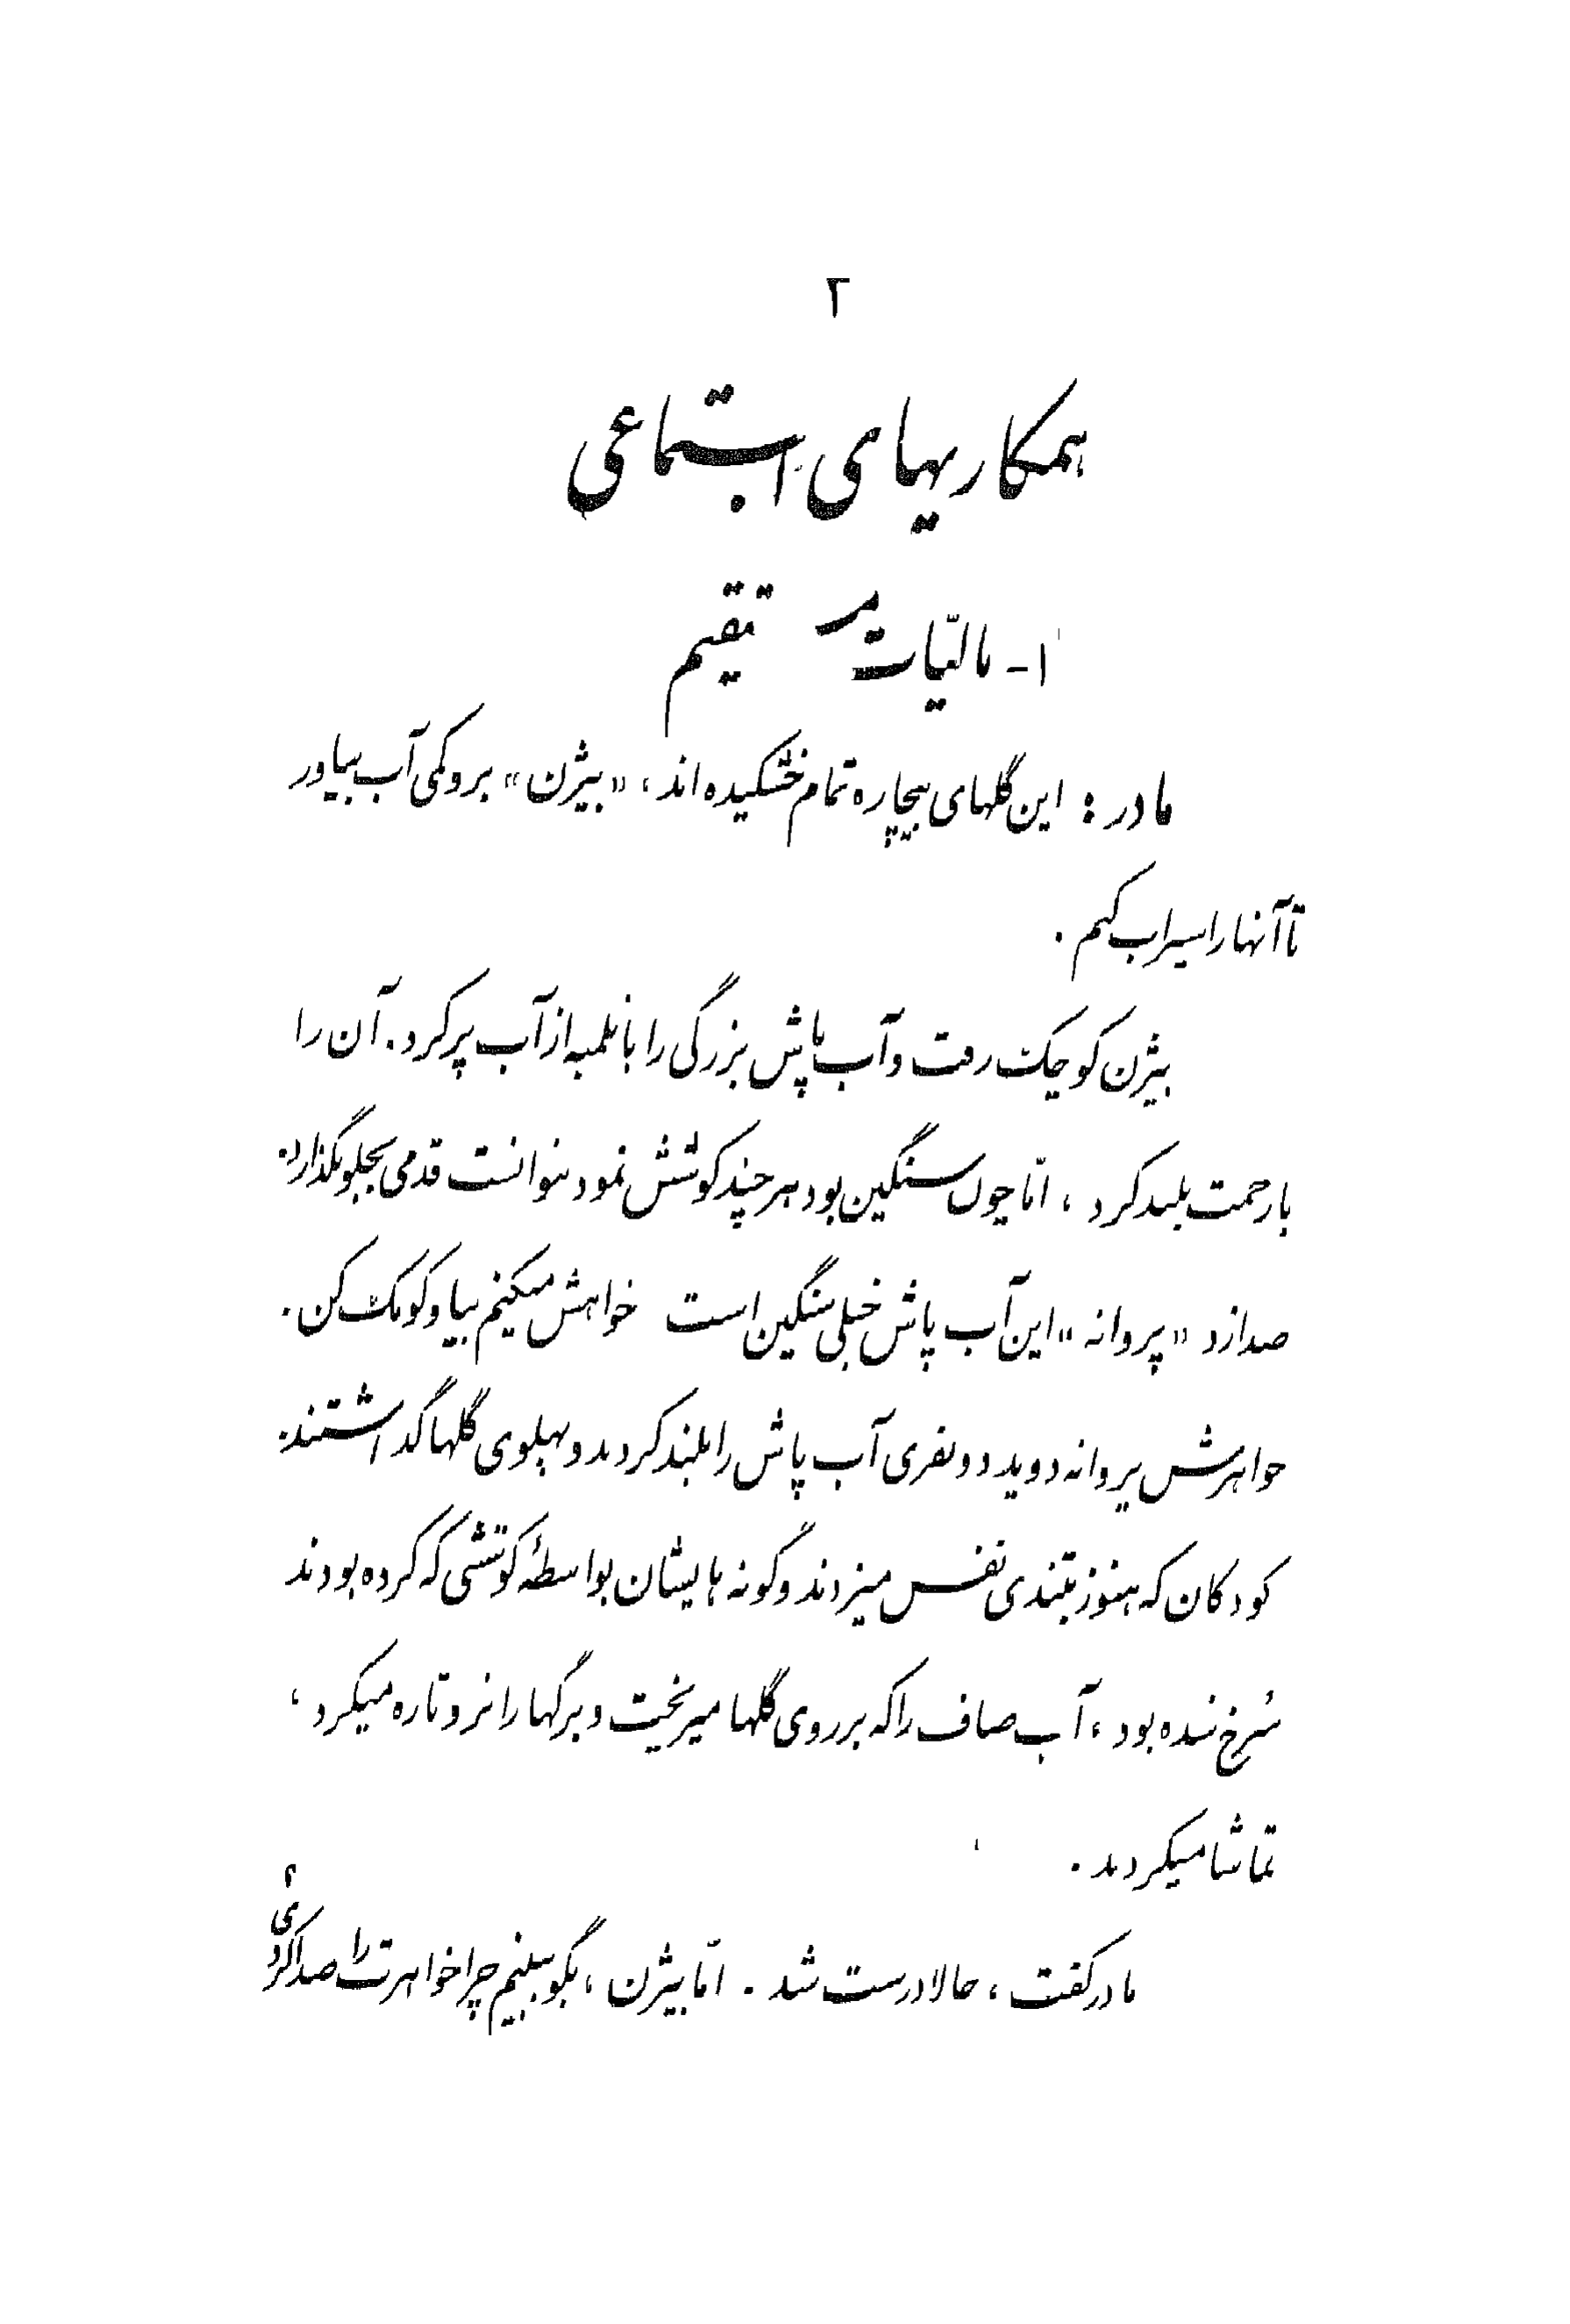 ۲
همکاریهای اجتماعی
۱- مالیّات مستقیم
مادر : این گلهای بیچاره تمام خشکیده اند ، «بیژن» برو کمی آب بیاور
تا آنها را سیراب کنم .
بیژن کوچک رفت و آب پاش بزرگی را با تلمبه از آب پر کرد . آن را
با زحمت بلند کرد ، امّا چون سنگین بود هر چند کوشش نمود نتوانست قدمی بجلو بگذارد .
صدا زد «پروانه» این آب پاش خیلی سنگین است خواهش میکنم بیا و کومک کن .
خواهرش پروانه دوید دو نفری آب پاش را بلند کردند و پهلوی گلها گذاشتند .
کودکان که هنوز بتندی نفس میزدند و گونه هایشان بواسطهٔ کوششی که کرده بودند
سُرخ شده بود ، آب صاف را که بر روی گلها میریخت و برگها را تر و تازه میکرد ،
تماشا میکردند .
مادر گفت ، حالا درست شد . امّا بیژن ، بگو ببینم چرا خواهرت را صدا کردی ؟